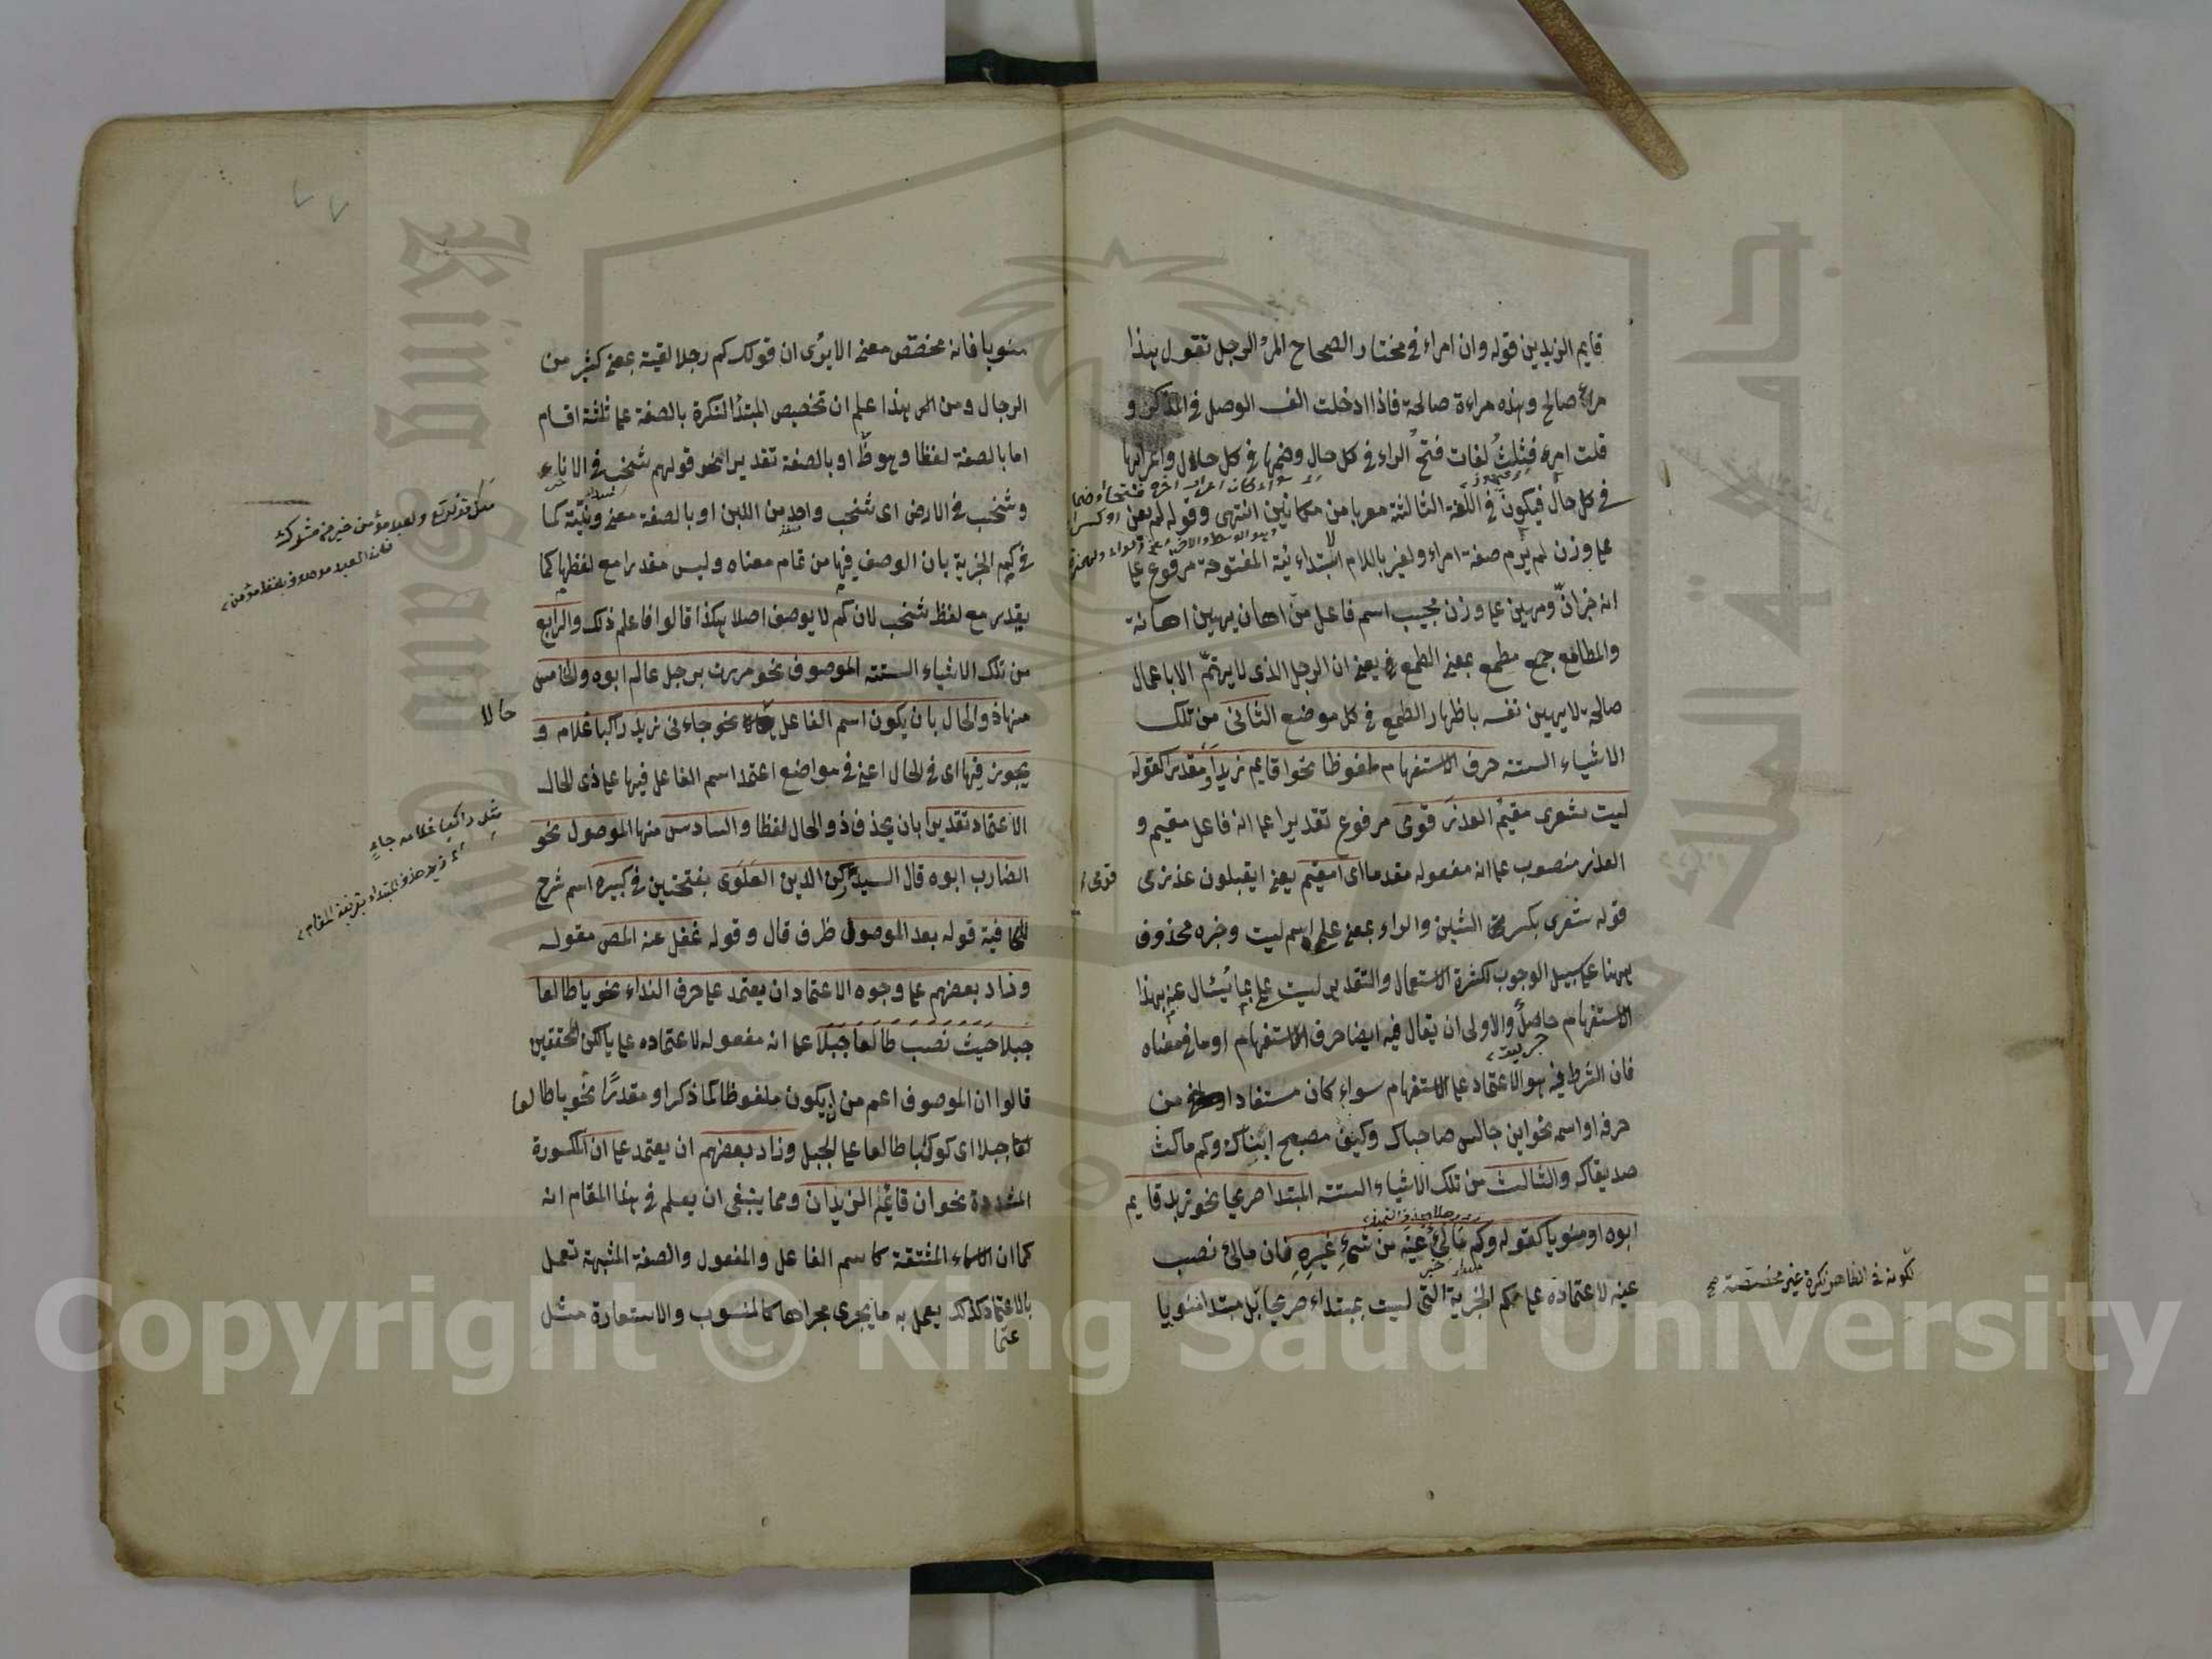 قايم الزيدين قوله وان امراء في مختار الصحاح المرؤ الرجل تقول هذا
مرؤ صالح وهذه مراءة صالحة فاذا ادخلت الف الوصل في المذكر و
قلت امرؤ فثلث لغات فتح الراء في كل حال وضمها في كل حال واعرابها
في كل حال فيكون في اللغة الثالثة معربا من مكانين انتهى وقوله لم يعن
على وزن لم يرم صفة امراء ولغير باللام الابتدائية المفتوحة مرفوع على
انه خبر ان ومهين على وزن مجيب اسم فاعل من اهان يهين اهانة
والمطامع جمع مطمع بمعنى الطمع يعني ان الرجل الذي لا يهتم الا باعمال
صالحة لا يهين نفسه باظهار الطمع في كل موضع الثاني من تلك
الاشياء الستة حرف الاستفهام ملفوظا نحو اقايم زيد او مقدرا كقوله
ليت شعرى مقيم العذر قومى مرفوع تقديرا على انه فاعل مقيم و
العذر منصوب على انه مفعوله مقدما اى امقيم يعني ايقبلون عذرى
قومى
قوله شعرى بكسر الشين والراء بمعنى علم اسم ليت وخبره محذوف
ههنا على سبيل الوجوب لكثرة الاستعمال والتقدير ليت علمى بما يسئال عنه بهذا
الاستفهام حاصل والاولى ان يقال فيه ايضا حرف الاستفهام او ما في معناه
فان الشرط فيه هو الاعتماد على الاستفهام سواء كان مستفادا من
حرفه او اسمه نحو اين جالس صاحباك وكيف مصبح ابناك وكم ماكث
صديقاك والثالث من تلك الاشياء الستة المبتدا صريحا نحو زيد قايم
ابوه او منويا كقوله وكم مالئ عينيه من شئ غيره فان مالئ نصب
عينيه لاعتماده على كم الخبرية التى ليست بمبتداء صريحا بل مبتدا منويا
لكونه في الظاهر نكرة غير مخصصة صح
منويا فانه مخصص معنى الا يرى ان قولك كم رجلا لقيته بمعنى كثير من
الرجال ومن الى هذا علم ان تخصيص المبتدأ النكرة بالصفة على ثلثة اقسام
اما بالصفة لفظا وهو ظ او بالصفة تقديرا نحو قولهم شخب في الاناء
وشخب في الارض اى شخب واحد من اللبن او بالصفة معنى ونية كما
في كم الخبرية بان الوصف فيها من تمام معناه وليس مقدرا مع لفظها كما
يقدر مع لفظ شخب لان كم لا يوصف اصلا هكذا قالوا فاعلم ذلك والرابع
من تلك الاشياء الستة الموصوف نحو مررت برجل عالم ابوه والخامس
منها ذو الحال بان يكون اسم الفاعل نحو جاءنى زيد راكبا غلامه و
حالا
يجوز فيها اى في الحال اعنى في مواضع اعتمد اسم الفاعل فيها على ذى الحال
الاعتماد تقديرا بان يحذف ذو الحال لفظا والسادس منها الموصول نحو
الضارب ابوه قال السيد ركن الدين العلوى بفتحتين في كبيره اسم شرح
للكافية قوله بعد الموصول ظرف قال وقوله غفل عنه المص مقوله
وزاد بعضهم على وجوه الاعتماد ان يعتمد على حرف النداء نحو يا طالعا
جبلا حيث نصب طالعا جبلا على انه مفعوله لاعتماده على يا لكن المحققين
قالوا ان الموصوف اعم من ان يكون ملفوظا كما ذكر او مقدرا نحو يا طالعا
جبلا اى كوكبا طالعا على الجبل وزاد بعضهم ان يعتمد على ان المكسورة
المشددة نحو ان قائم الزيدان ومما ينبغى ان يعلم في هذا المقام انه
كما ان الاسماء المشتقة كاسم الفاعل والمفعول والصفة المشبهة تعمل
بالاعتماد كذلك يعمل به ما يجرى مجراها كالمنسوب والاستعارة مثل
مثل قوله تع ولعبد مؤمن خير من مشرك
فان العبد موصوف بلفظ مؤمن
مثل راكبا غلامه جاء
Copyright © King Saud University
King Saud University